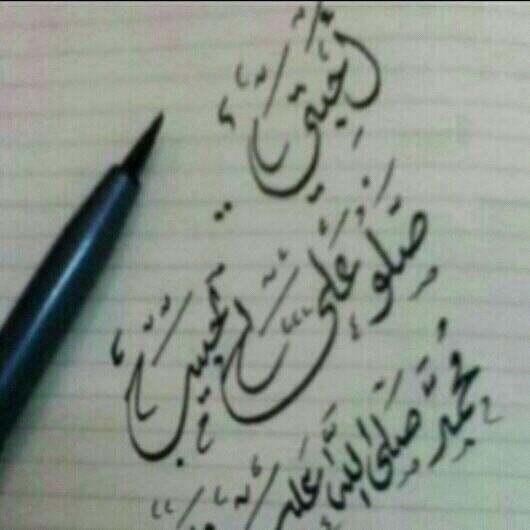 أحبتي ..
صلو على الحبيب
محمد صلى الله عليه